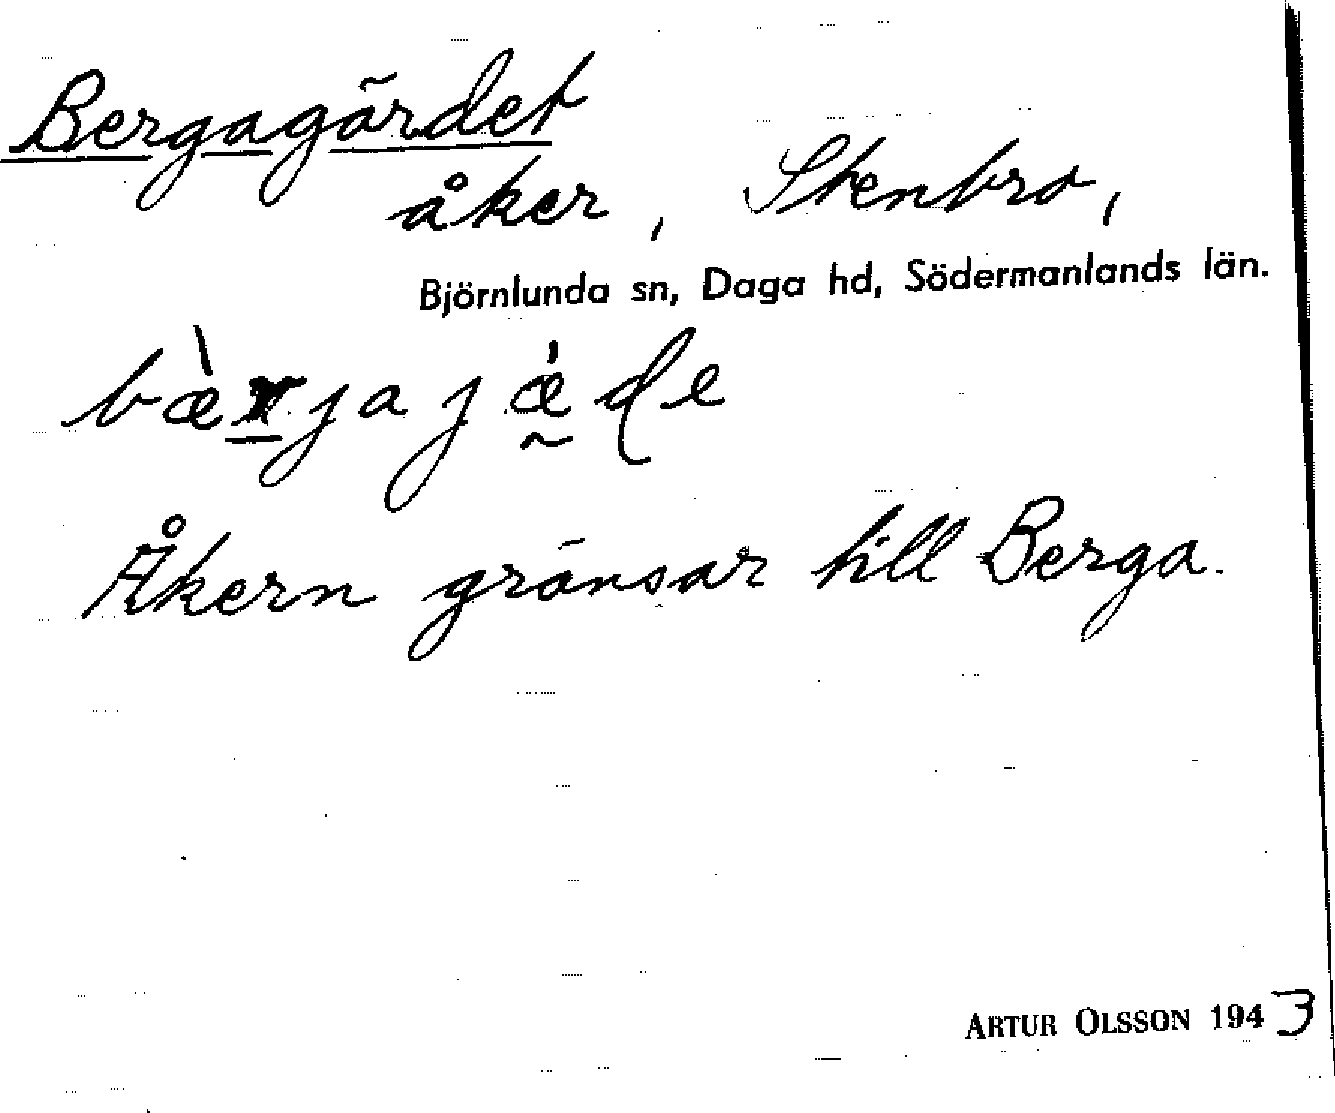 Bergagärdet
åker, Stenbro,
Björnlunda sn, Daga hd, Södermanlands län.
Åkern gränsar till Berga.
ARTUR OLSSON 1943